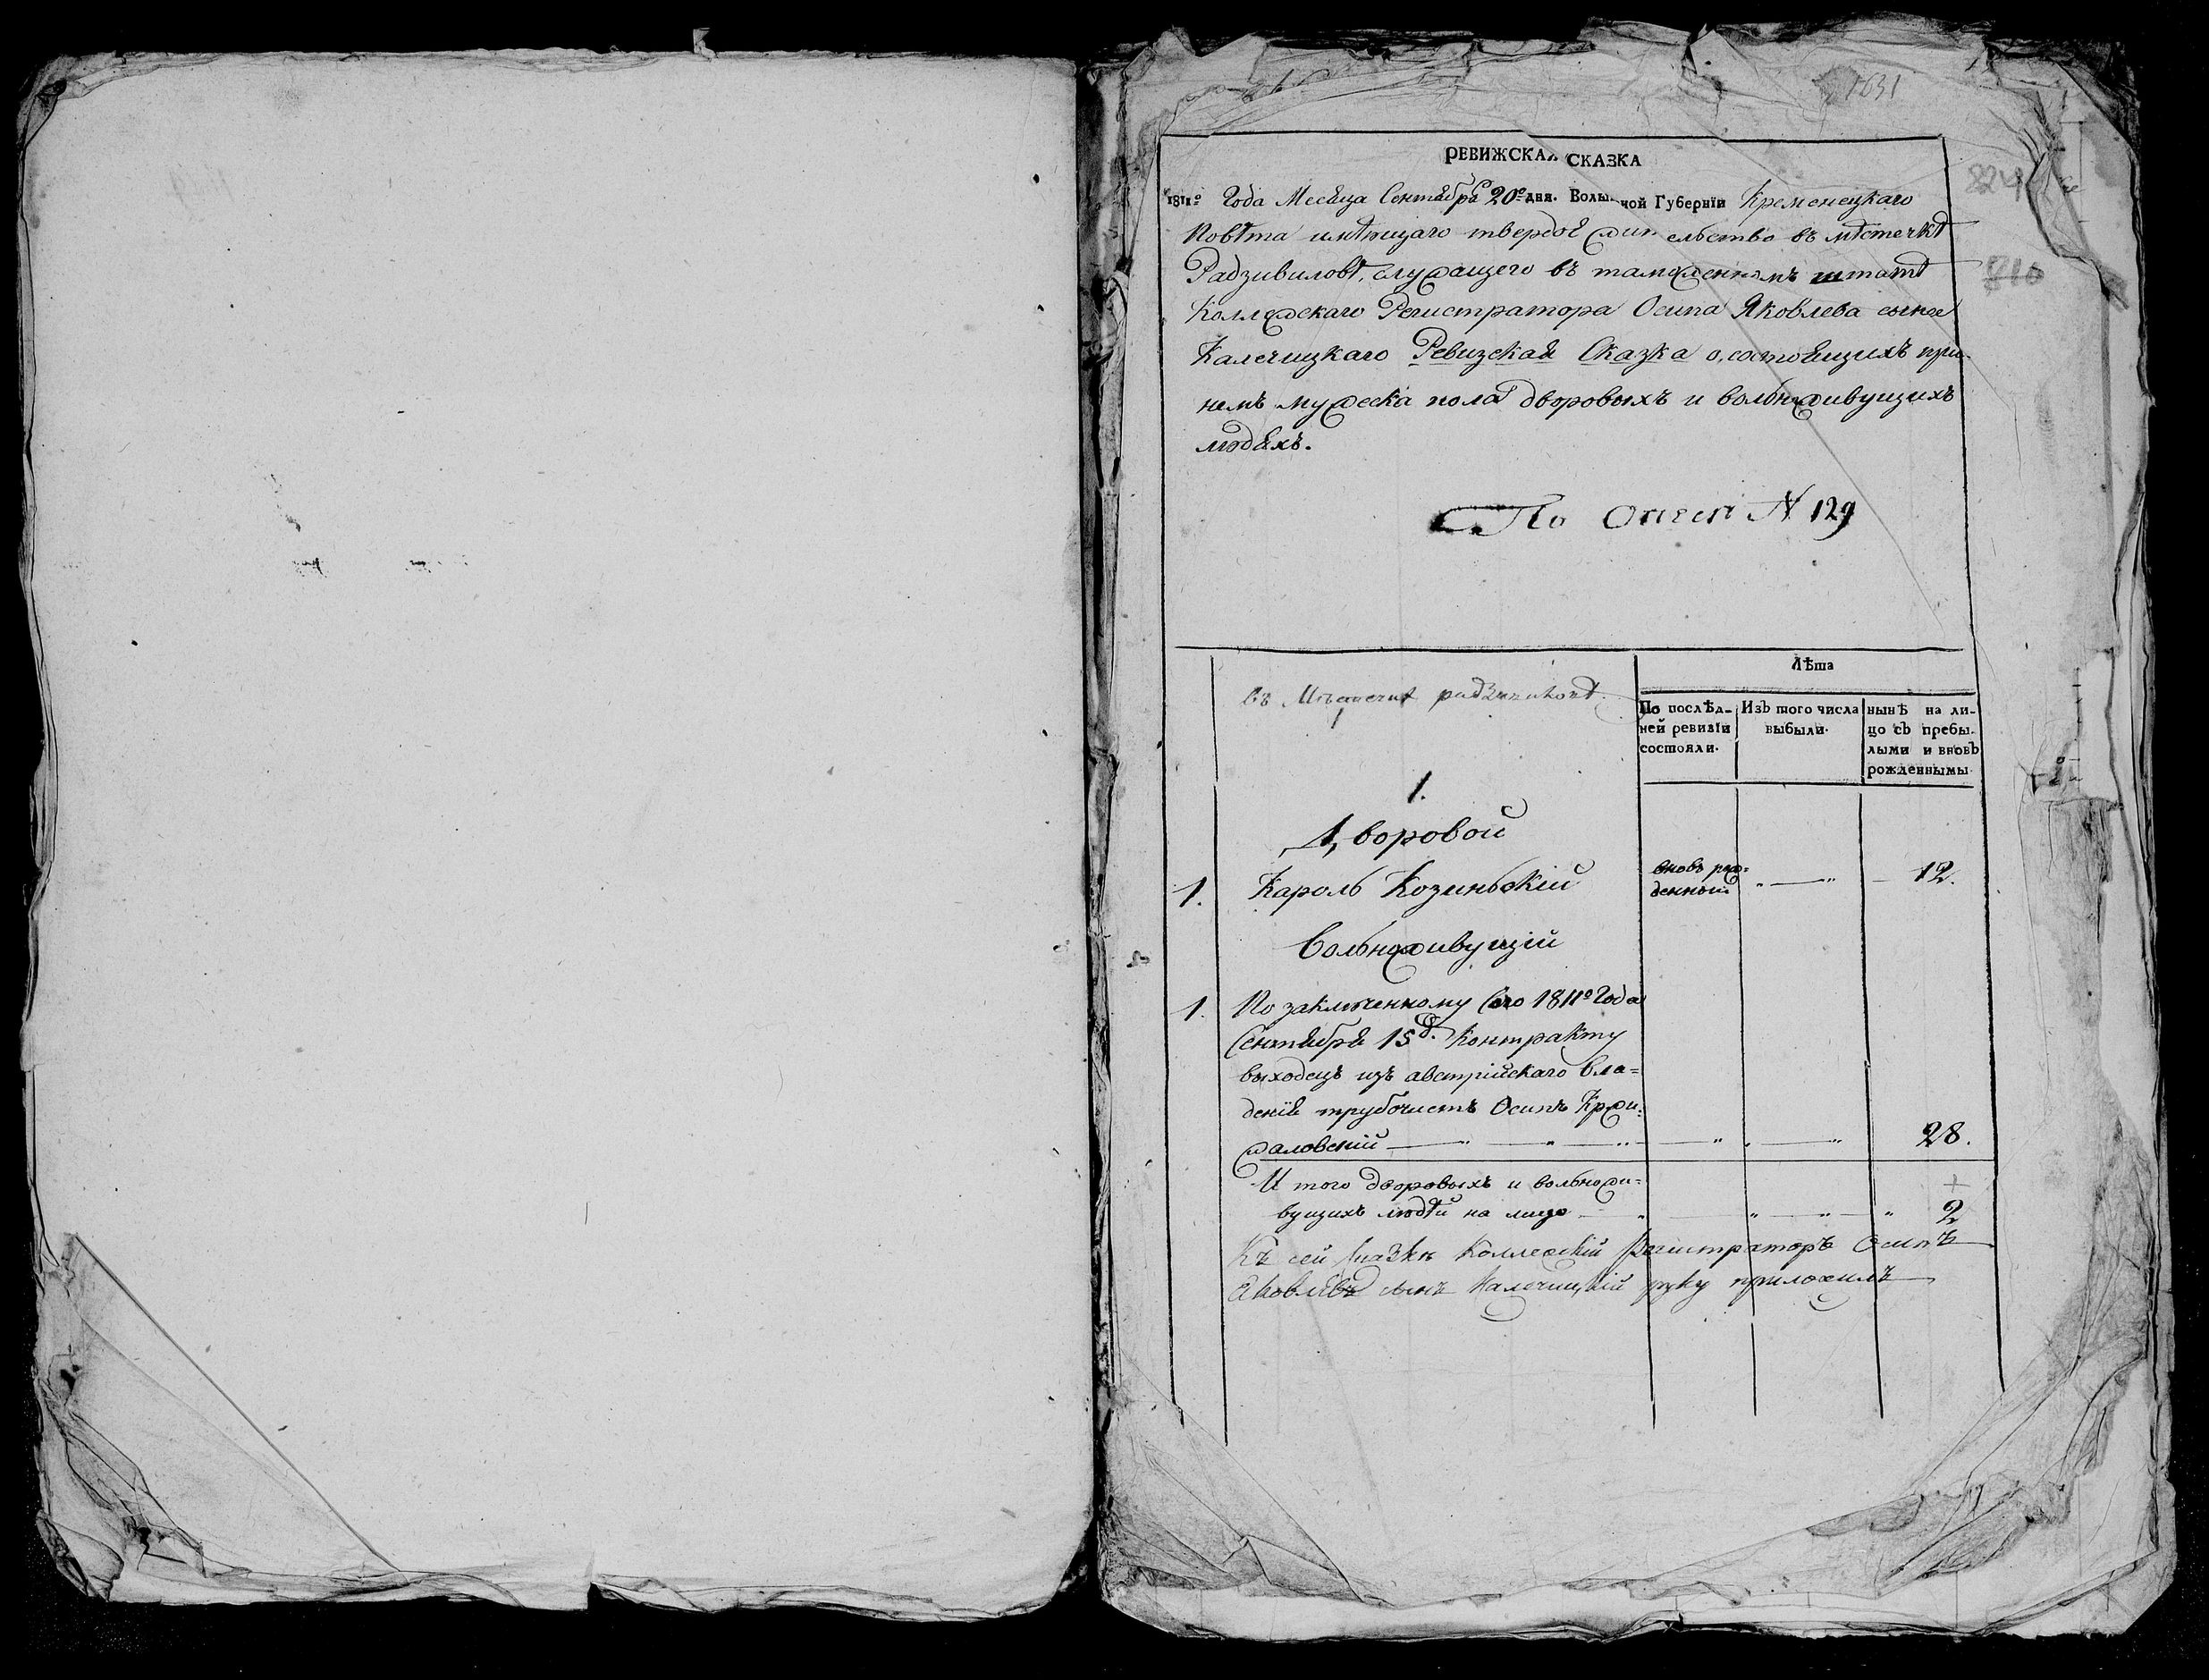 1631
РЕВИЖСКАЯ СКАЗКА
1811º Года Месяца Сентября 20º дня. Волын ной Губернїи Кременецкаго
824
Повѣта имѣющаго твердое жительство въ мѣстечкѣ
Радзивиловѣ, служащего въ таможенномъ штатѣ
710
Колежскаго Регистратора Осипа Яковлева сына
Калечицкаго Ревизская Сказка о, состоящихъ при
немъ мужеска пола дворовыхъ и вольноживущихъ
людяхъ.
По Описи № 129
Лѣта
въ Мѣстечкѣ радзивиловѣ
По послѣд- Изъ того числа нынѣ на ли-
ней ревизїи выбыли. цо съ пребы-
состояли. лыми и вновь
рожденными
1.
Дворовой
1. Кароль Козиньскій вновь рож= 12.
денный
Вольноживущій
1. По заключенному Сего 1811º Года
Сентября 15 д. Контракту
выходецъ изъ австрійскаго вла=
денія трубочистъ Осипъ Кржи=
жаловскій 28.
И того дворовыхъ и вольножи=
вущихъ людѣй на лицо 2
Къ сей сказкѣ Коллежскій регистраторъ Осипъ
Яковлевъ сынъ Калечицкій руку приложилъ